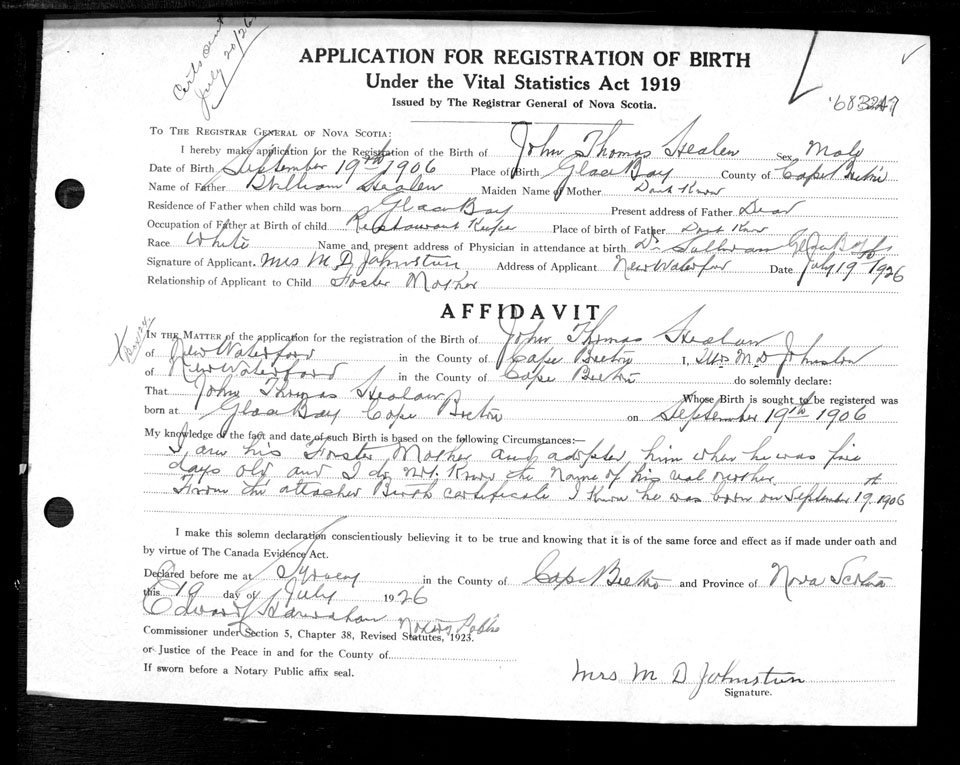 Certs sent
July 20/26
APPLICATION FOR REGISTRATION OF BIRTH
Under the Vital Statistics Act 1919
Issued by The Registrar General of Nova Scotia.
TO THE REGISTRAR GENERAL OF NOVA SCOTIA:
I hereby make application for the Registration of the Birth of John Thomas Healen Sex Male
Date of Birth September 19th 1906 Place of Birth Glace Bay County of Cape Breton
Name of Father William Healen Maiden Name of Mother Dont Know
Residence of Father when child was born Glace Bay Present address of Father Dead
Occupation of Father at Birth of child Restaurant Keeper Place of birth of Father Dont Know
Race White Name and present address of Physician in attendance at birth Dr Sullivan Glace Bay
Signature of Applicant Mrs M D Johnston Address of Applicant New Waterford Date July 19 1926
Relationship of Applicant to Child Foster Mother
AFFIDAVIT
IN THE MATTER of the application for the registration of the Birth of John Thomas Healan
of New Waterford in the County of Cape Breton I, Mrs M D Johnston
of New Waterford in the County of Cape Breton do solemnly declare:
That John Thomas Healan Whose Birth is sought to be registered was
born at Glace Bay Cape Breton on September 19th 1906
My knowledge of the fact and date of such Birth is based on the following Circumstances:—
I am his Forster Mother and adopted him when he was five
days old, and I do not Know the Name of his real mother.
From the attached Birth certificate I know he was born on September 19th 1906
I make this solemn declaration conscientiously believing it to be true and knowing that it is of the same force and effect as if made under oath and
by virtue of The Canada Evidence Act.
Declared before me at Sydney in the County of Cape Breton and Province of Nova Scotia
this 19 day of July 1926
Edward Hanrahan Notary Public
Commissioner under Section 5, Chapter 38, Revised Statutes, 1923.
or Justice of the Peace in and for the County of
If sworn before a Notary Public affix seal.
Mrs M D Johnston
Signature.